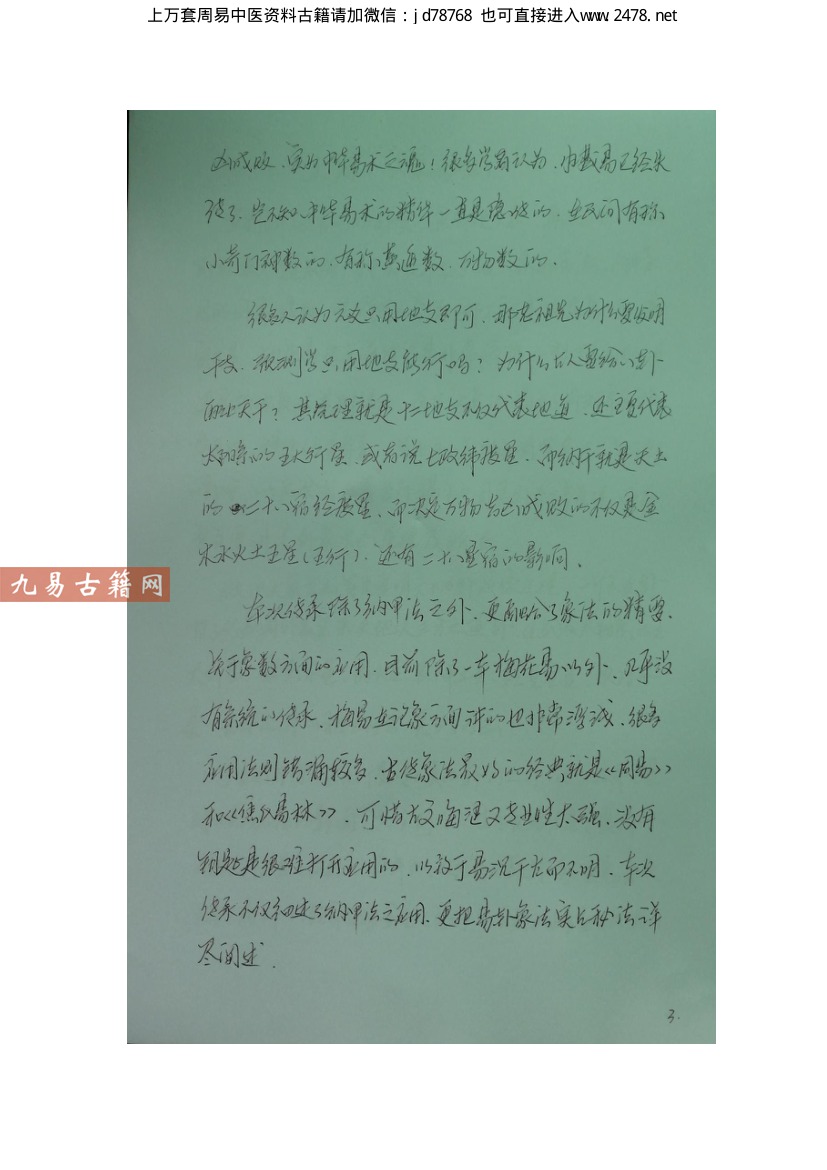 上万套周易中医资料古籍请加微信：jd78768 也可直接进入www.2478.net
凶成败、实为中华易术之魂！很多学者认为，中华易已经失
传了、岂不知，中华易术的精华一直是隐性的、在民间有称
小奇门神数的、有称万物数的、
很多人认为六爻只用地支即可、那老祖先为什么要发明
干支、预测学只用地支能行吗？为什么古人要给八卦
配上天干？其道理就是十二地支不仅代表地道、还主要代表
太阳系的五大行星、或者说七政纬度星、而纳干就是天上
的二十八宿经度星、而决定万物吉凶成败的不仅是金
木水火土五星（五行）、还有二十八星宿的影响、
九易古籍网
本次传承除了纳甲法之外、更融合了象法的精要、
关于象数方面的应用、目前除了一本梅花易以外、几乎没
有系统的传承、梅易在记象方面讲的也非常浮浅、很多
应用法则错漏较多、古传象法最好的经典就是《周易》
和《焦氏易林》、可惜古文晦涩又专业性太强、没有
钥匙是很难打开应用的、以致于易况千古而不明、本次
传承不仅细述了纳甲法之应用、更把易卦象法实占秘法详
尽阐述、
3.